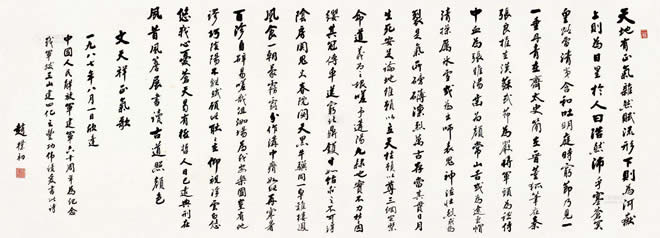 天地有正氣雜然賦流形下則為河嶽
上則為日星於人曰浩然沛乎塞蒼冥
皇路當清夷含和吐明庭時窮節乃見一
一垂丹青在齊太史簡在晉董狐筆在秦
張良椎在漢蘇武節為嚴將軍頭為嵇侍
中血為張睢陽齒為顏常山舌或為遼東帽
清操厲冰雪或為出師表鬼神泣壯烈或為
裂是氣所磅礴凜烈萬古存當其貫日月
生死安足論地維賴以立天柱賴以尊三綱實繫
命道義為之根嗟予遘陽九隸也實不力楚囚
纓其冠傳車送窮北鼎鑊甘如飴求之不可得
陰房闃鬼火春院閟天黑牛驥同一皁雞棲鳳
凰食一朝蒙霧露分作溝中瘠如此再寒暑
百沴自辟易嗟哉沮洳場為我安樂國豈有他
繆巧陰陽不能賊顧此耿耿在仰視浮雲白悠
悠我心憂蒼天曷有極哲人日已遠典刑在
夙昔風簷展書讀古道照顏色
文天祥正氣歌
一九八七年八月一日欣逢
中國人民解放軍建軍六十周年為紀念
我軍建四化之豐功偉績爰書此詩
趙樸初